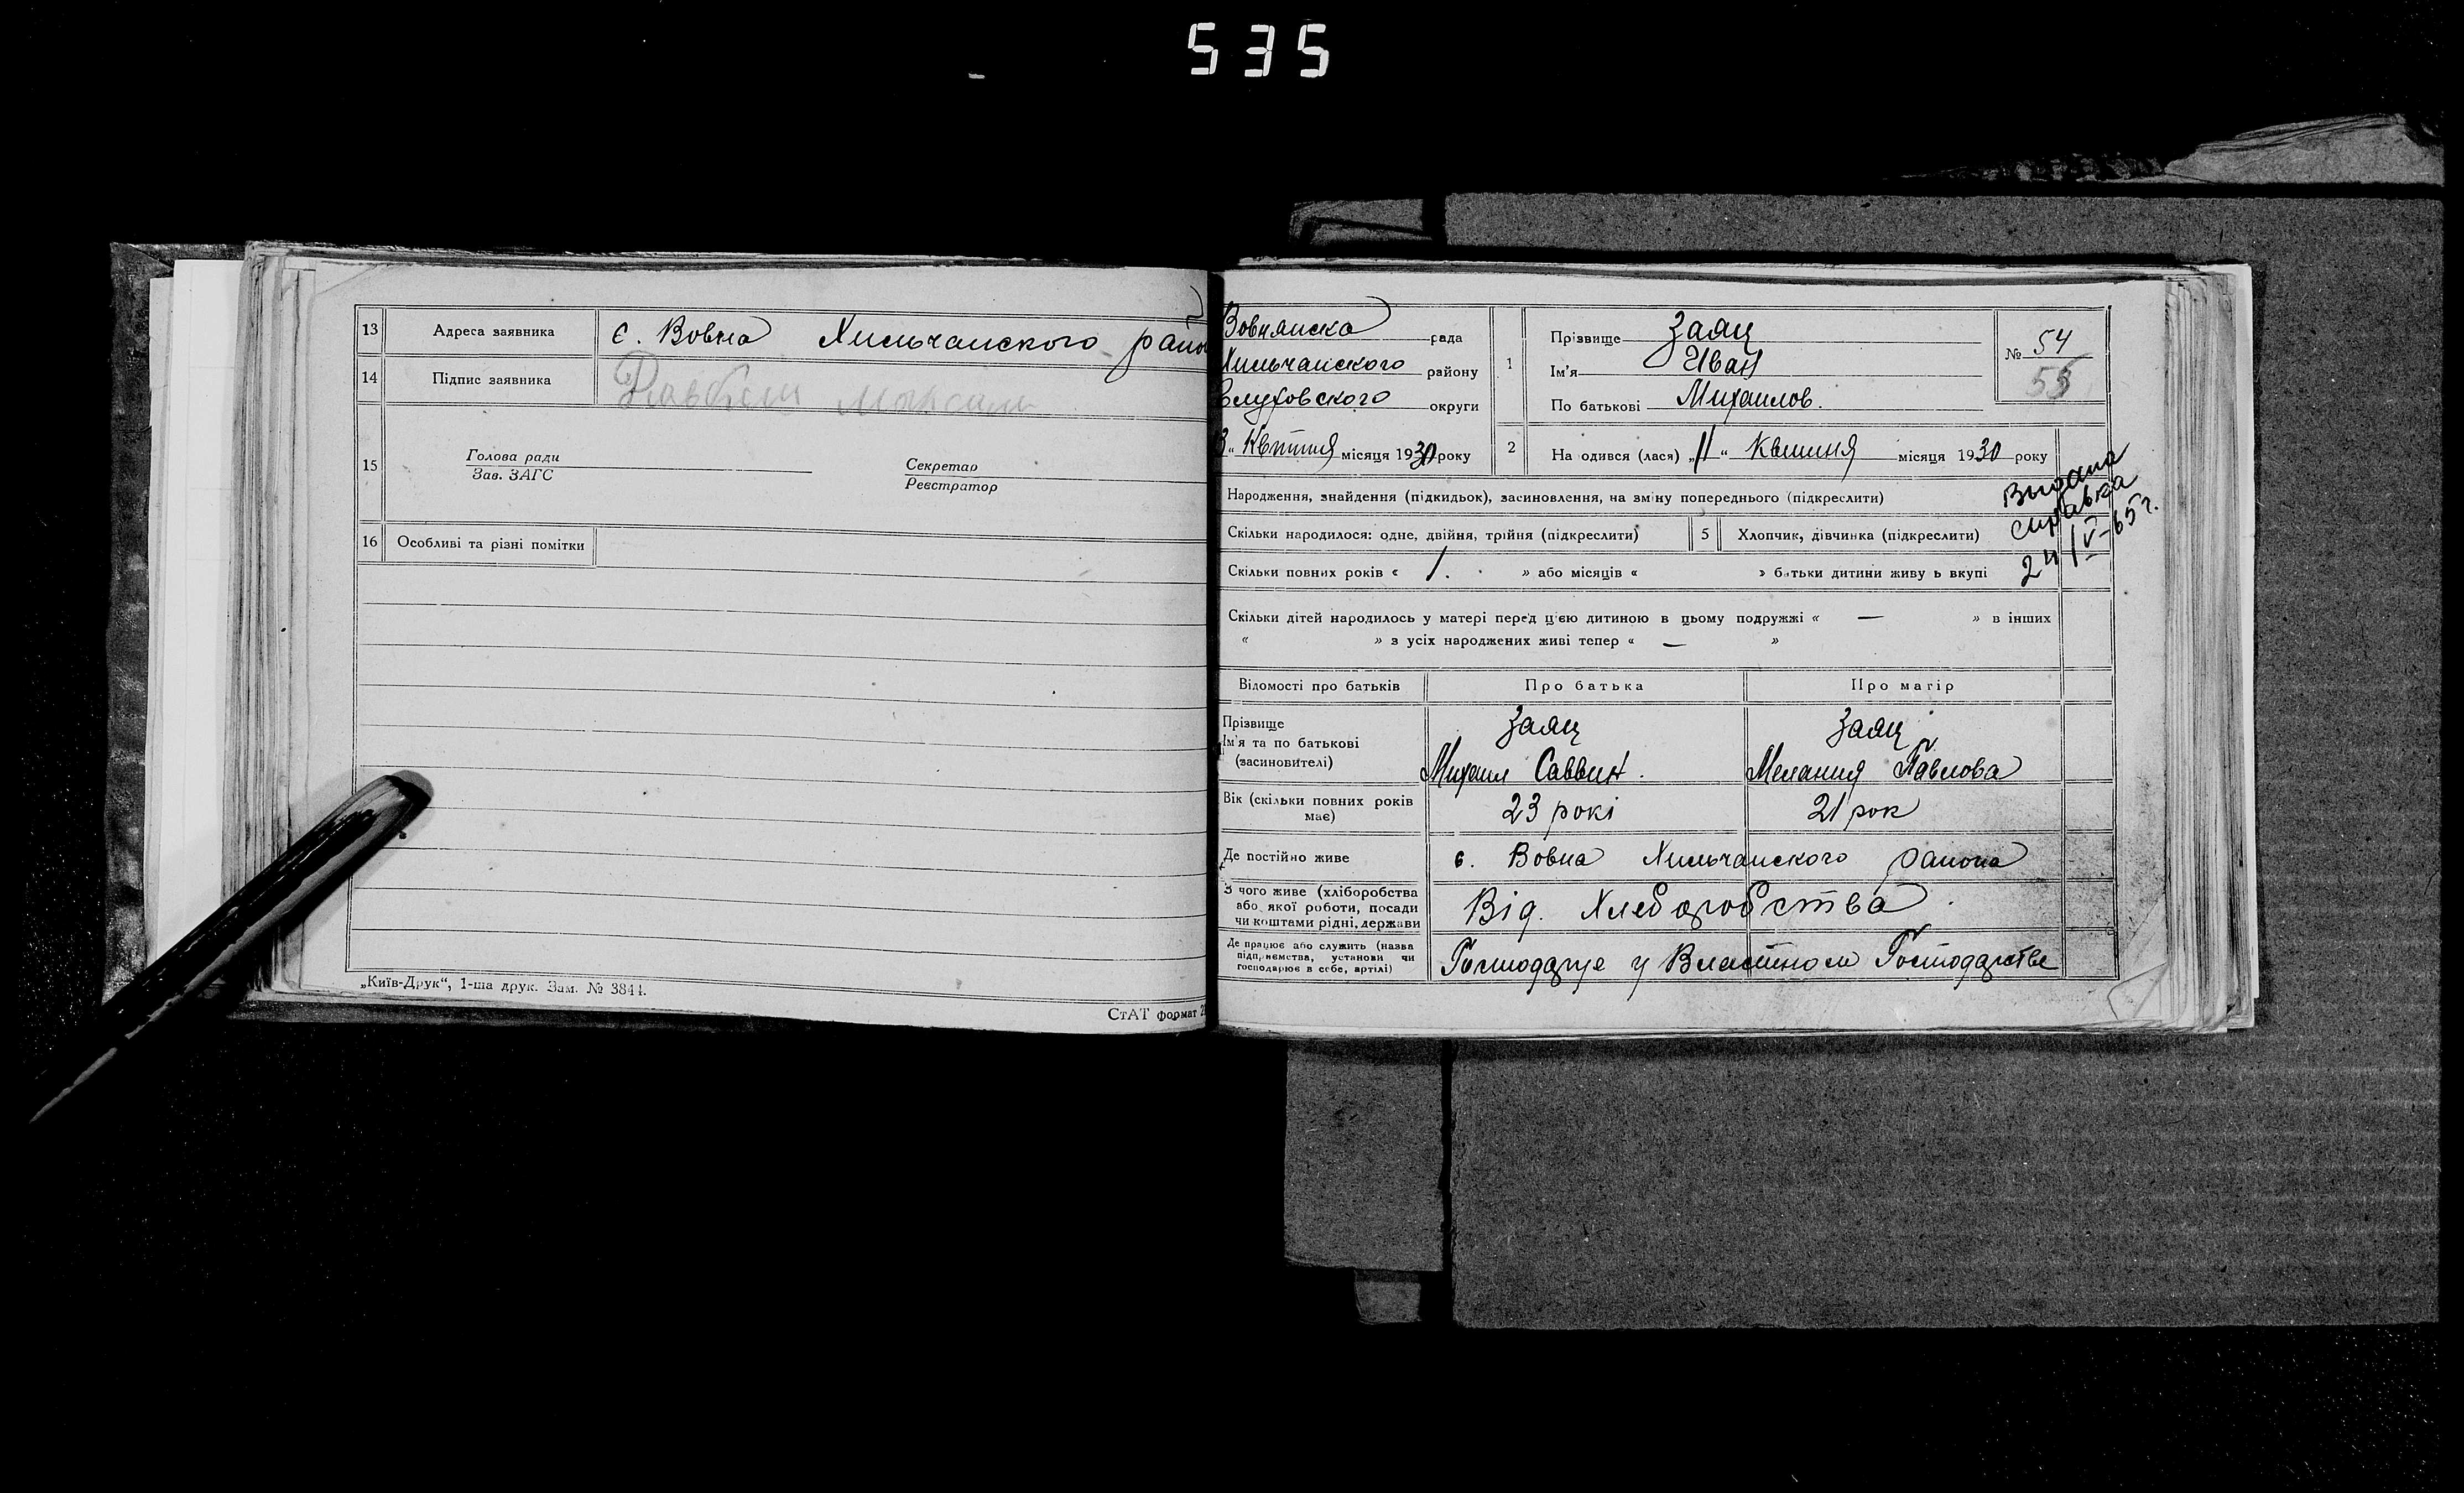 535
13 Адреса заявника с. Вовна Хильчанского райо
14 Підпис заявника
15 Голова ради Секретар
Зав. ЗАГС Реєстратор
16 Особливі та різні помітки
„Київ-Друк“, 1-ша друк. Зам. № 3844.
СтАТ формат
Вовнянска рада
Хильчанского району
Глуховского округи
3 „ Квітня місяця 1930 року
1 Прізвище Заяц
Ім'я Иван
По батькові Михаилов.
№ 54
55
2 На одився (лася) „11“ Квітня місяця 1930 року
Выдана
справка
24/V-65 г.
Народження, знайдення (підкидьок), засиновлення, на зміну попереднього (підкреслити)
Скільки народилося: одне, двійня, трійня (підкреслити) 5 Хлопчик, дівчинка (підкреслити)
Скільки повних років « 1. » або місяців « » батьки дитини живу ь вкупі
Скільки дітей народилось у матері перед цією дитиною в цьому подружжі « — » в інших
« » з усіх народжених живі тепер « — »
Відомості про батьків Про батька Про матір
Прізвище Заяц Заяц
Ім'я та по батькові
(засиновителі) Михаил Саввин. Мелания Павлова
Вік (скільки повних років має) 23 рокі 21 рок
Де постійно живе с. Вовна Хильчанского раиона
З чого живе (хліборобства
або якої роботи, посади
чи коштами рідні, держави Від. Хлеборобства.
Де працює або служить (назва
підприємства, установи чи
господарює в себе, артілі) Господарце у Властном Господарстве